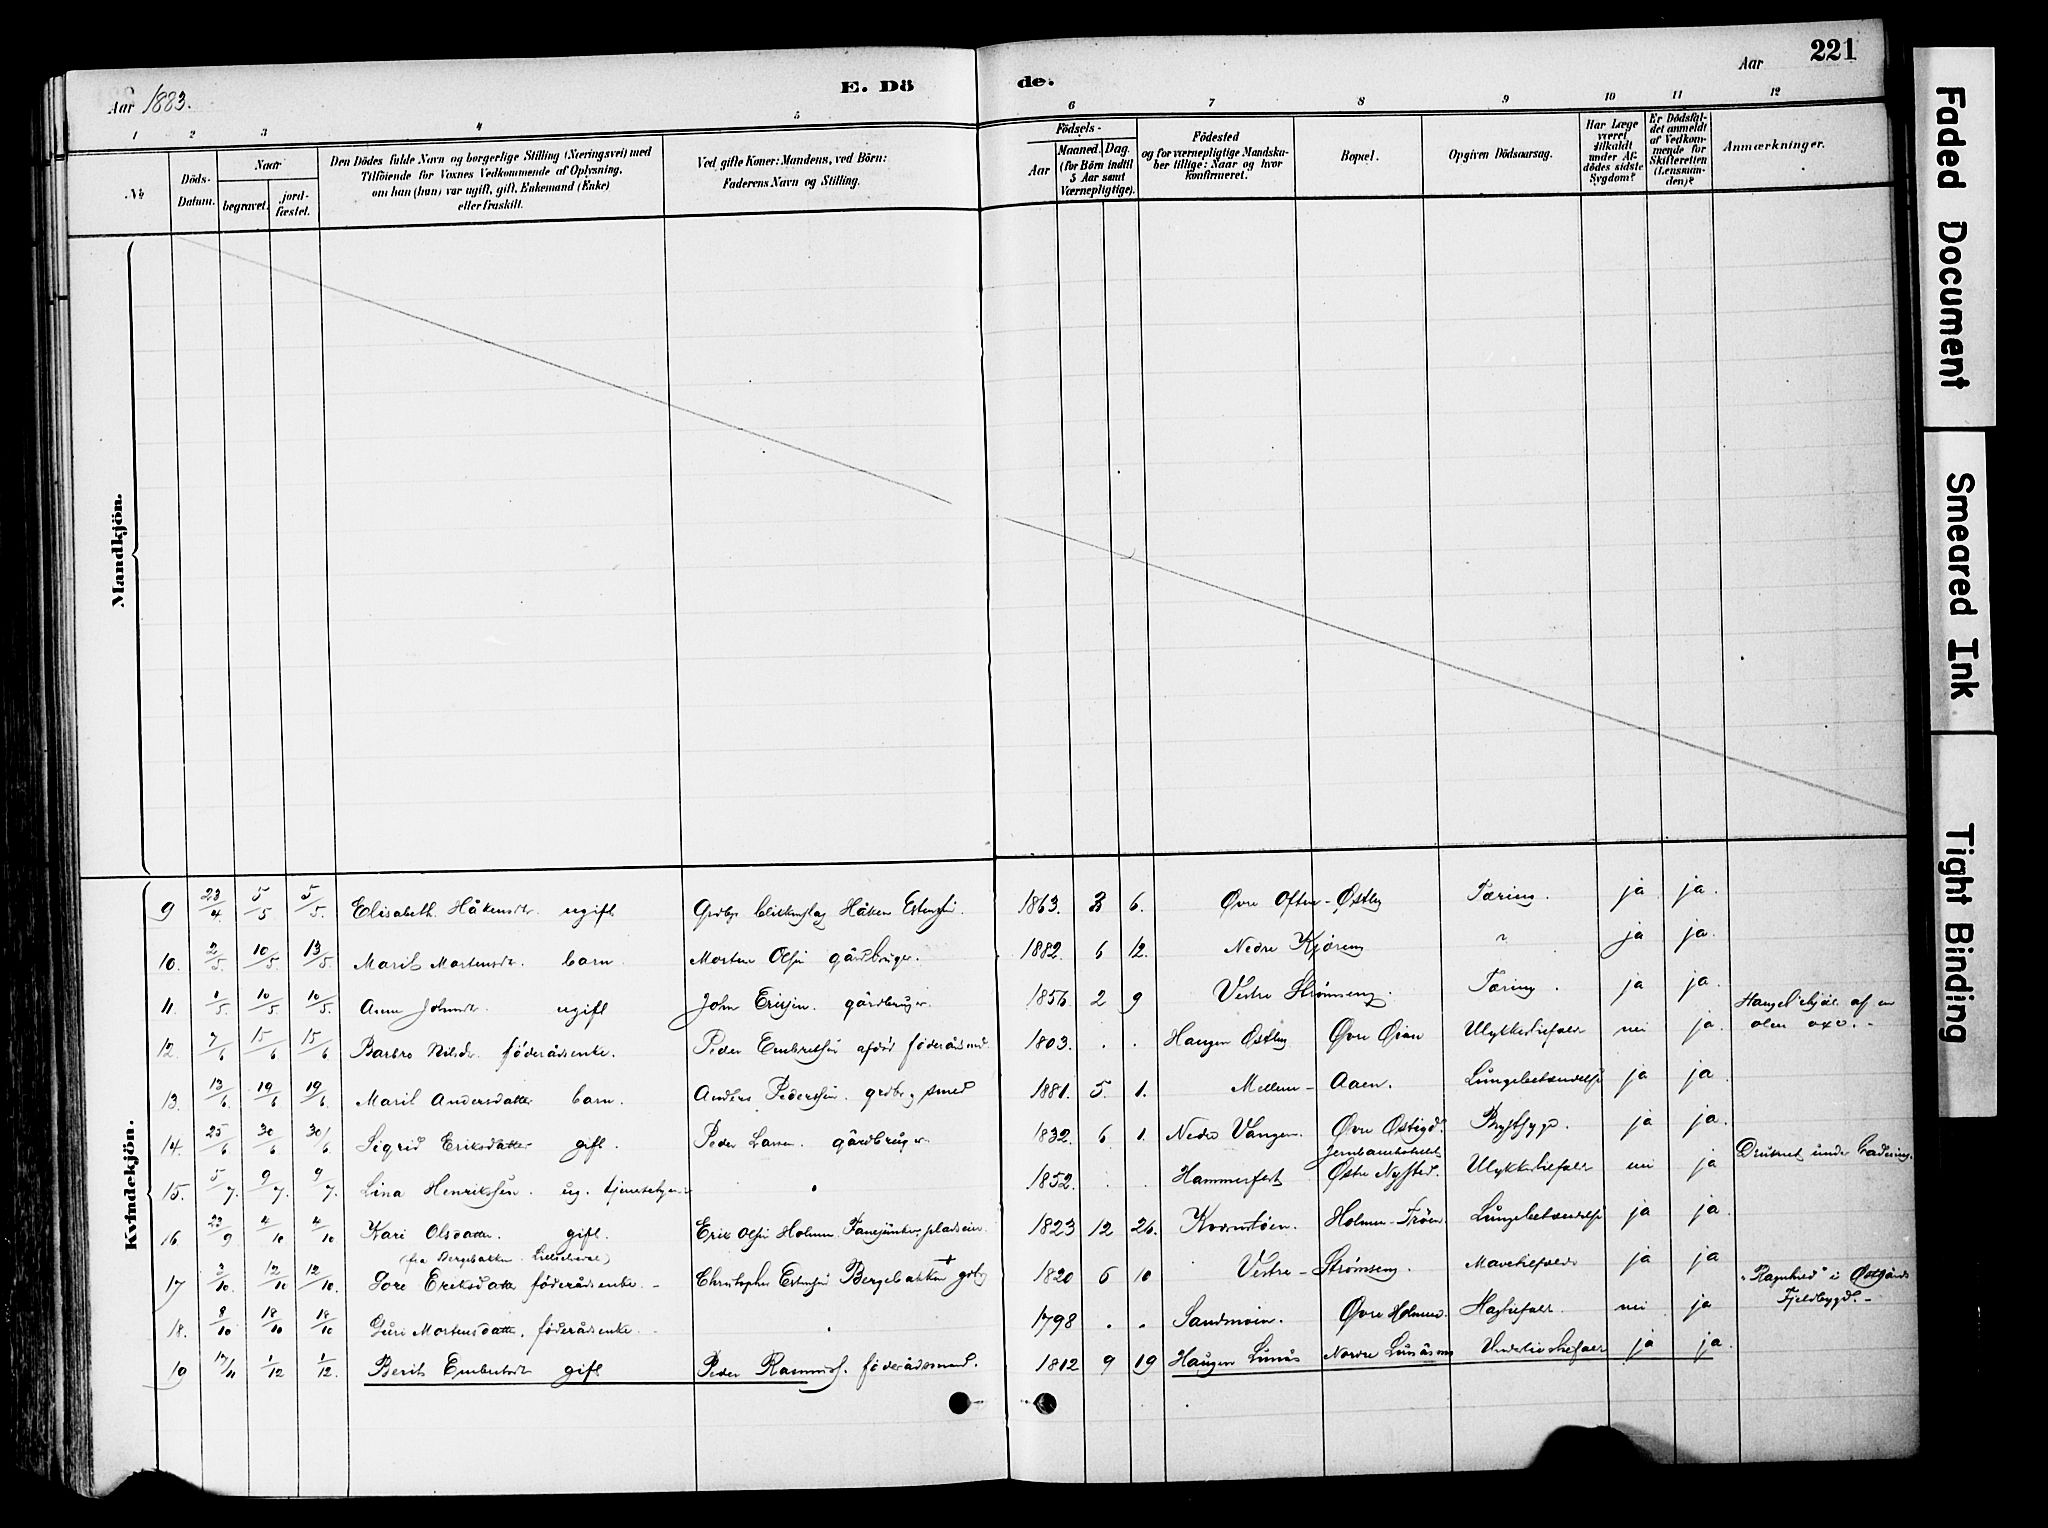 221
Aar 1883.
E. Dö de.
Aar
1 2 3 4 5 6 7 8 9 10 11 12
No
Döds-Datum.
Naar
begravet.
jord-fæstet.
Den Dödes fulde Navn og borgerlige Stilling (Næringsvei) med
Tilföiende for Voxnes Vedkommende af Oplysning,
om han (hun) var ugift, gift, Enkemand (Enke)
eller fraskilt.
Ved gifte Koner: Mandens, ved Börn:
Faderens Navn og Stilling.
Födsels-
Aar
Maaned. Dag.
(for Börn indtil
5 Aar samt
Værnepligtige).
Födested
og for værnepligtige Mandska-
ber tillige: Naar og hvor
konfirmeret.
Bopæl.
Opgiven Dödsaarsag.
Har Læge
været
tilkaldt
under Af-
dödes sidste
Sygdom?
Er Dödsfal-
det anmeldt
af Vedkom-
mende for
Skifteretten
(Lensman-
den)?
Anmærkninger.
Mandkjön.
Kvindekjön.
9 23/4 5/5 5/5. Elisabeth Håkensdtr. ugift Håken Estensen. 1863. 3 6. Øvre - Østby Tæring. ja ja.
10. 2/5 10/5 13/5 Marit Mortensdtr. barn. Morten Olsen gårdbruger. 1882. 6 12. Nedre Kjøreng " ja ja.
11. 1/5 10/5 10/5. Anne Johnsdtr. ugift John Eriksen. gårdbruger. 1856. 2 9 Vestre Strømseng. Tæring. ja ja.
12. 7/6 15/6 15/6 Barbro Nilsdtr. föderådsenke. Peder Embretsen afdød föderådsmd. 1803. . . Haugen Østby Øvre Ulykkestilfælde nei ja. af en olm oxe. -
13. 13/6 19/6 19/6 Marit Andersdatter barn. Anders Pedersen. grdbr. og smed 1881. 5. 1. Mellem - Aaen. Lungebetændelse ja ja.
14. 25/6 30/6 30/6 Sigrid Eriksdatter gift. Peder Larsen. gårdbruger. 1832. 6 1. Nedre Vangen. Øvre Østigd. Brystsyge. ja ja.
15. 5/7. 9/7. 9/7. Lina Henriksen. ug. tjenestepige. " 1852. . . Hammerfest Østre Nysted. Ulykkestilfælde nei ja Druknet under Badning.
16 23/9 4/10 4/10 Kari Olsdatter. gift. Erik Olsen Holmen pladseier. 1823 12 26. Kvernmoen. Holmen-Trøen. Lungebetændelse ja ja.
(fra Bergebakken )
17 3/10. 12/10 12/10. Gore Eriksdatter föderådsenke. - Christopher Estensen Bergebakken + grdbr. 1820 6 10 Vestre - Strømseng. Mavetilfælde ja ja
18. 8/10 18/10 18/10 Guri Mortensdatter. föderådsenke. . 1798 . . Sandmoen. Øvre Holmen. Slagtilfælde. nei ja "Ragnhild" i Østgårds Fjeldbygd. -
19 17/11 1/12 1/12. Berit Embretsdtr gift Peder Rasmuss. föderådsmand. 1812 9 19 Haugen Lunås Nordre Lunåsmo ja ja.
Faded Document
Smeared Ink
Tight Binding